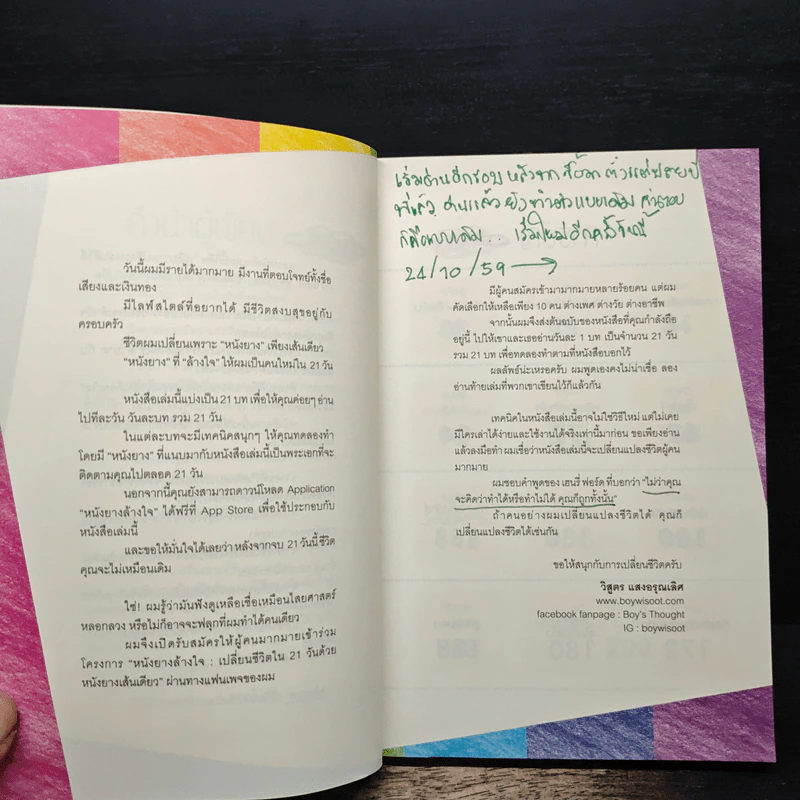 วันนี้ผมมีรายได้มากมาย มีงานที่ตอบโจทย์ทั้งชื่อ
เสียงและเงินทอง
มีไลฟ์สไตล์ที่อยากได้ มีชีวิตสงบสุขอยู่กับ
ครอบครัว
ชีวิตผมเปลี่ยนเพราะ "หนังยาง" เพียงเส้นเดียว
"หนังยาง" ที่ "ล้างใจ" ให้ผมเป็นคนใหม่ใน 21 วัน
หนังสือเล่มนี้แบ่งเป็น 21 บท เพื่อให้คุณค่อยๆ อ่าน
ไปทีละวัน วันละบท รวม 21 วัน
ในแต่ละบทจะมีเทคนิคสนุกๆ ให้คุณทดลองทำ
โดยมี "หนังยาง" ที่แนบมากับหนังสือเล่มนี้เป็นพระเอกที่จะ
ติดตามคุณไปตลอด 21 วัน
นอกจากนี้คุณยังสามารถดาวน์โหลด Application
"หนังยางล้างใจ" ได้ฟรีที่ App Store เพื่อใช้ประกอบกับ
หนังสือเล่มนี้
และขอให้มั่นใจได้เลยว่า หลังจากจบ 21 วันนี้ชีวิต
คุณจะไม่เหมือนเดิม
ใช่! ผมรู้ว่ามันฟังดูเหลือเชื่อเหมือนไสยศาสตร์
หลอกลวง หรือไม่ก็อาจจะฟลุกที่ผมทำได้คนเดียว
ผมจึงเปิดรับสมัครให้ผู้คนมากมายเข้าร่วม
โครงการ "หนังยางล้างใจ : เปลี่ยนชีวิตใน 21 วันด้วย
หนังยางเส้นเดียว" ผ่านทางแฟนเพจของผม
เริ่มอ่านอีกรอบ หลังจาก ซื้อมา ตั้งแต่ปลายปี
ที่แล้ว อ่านแล้ว ยังทำตัวแบบเดิม คำตอบ
ก็คือแบบเดิม.. เริ่มใหม่อีกครั้งวันนี้
24/10/59 →
มีผู้คนสมัครเข้ามามากมายหลายร้อยคน แต่ผม
คัดเลือกให้เหลือเพียง 10 คน ต่างเพศ ต่างวัย ต่างอาชีพ
จากนั้นผมจึงส่งต้นฉบับของหนังสือที่คุณกำลังถือ
อยู่นี้ ไปให้เขาและเธออ่านวันละ 1 บท เป็นจำนวน 21 วัน
รวม 21 บท เพื่อทดลองทำตามที่หนังสือบอกไว้
ผลลัพธ์น่ะเหรอครับ ผมพูดเองคงไม่น่าเชื่อ ลอง
อ่านท้ายเล่มที่พวกเขาเขียนไว้ก็แล้วกัน
เทคนิคในหนังสือเล่มนี้อาจไม่ใช่วิธีใหม่ แต่ไม่เคย
มีใครเล่าได้ง่ายและใช้งานได้จริงเท่านี้มาก่อน ขอเพียงอ่าน
แล้วลงมือทำ ผมเชื่อว่าหนังสือเล่มนี้จะเปลี่ยนแปลงชีวิตผู้คน
มากมาย
ผมชอบคำพูดของ เฮนรี่ ฟอร์ด ที่บอกว่า "ไม่ว่าคุณ
จะคิดว่าทำได้หรือทำไม่ได้ คุณก็ถูกทั้งนั้น"
ถ้าคนอย่างผมเปลี่ยนแปลงชีวิตได้ คุณก็
เปลี่ยนแปลงชีวิตได้เช่นกัน
ขอให้สนุกกับการเปลี่ยนชีวิตครับ
วิสูตร แสงอรุณเลิศ
www.boywisoot.com
facebook fanpage : Boy's Thought
IG : boywisoot